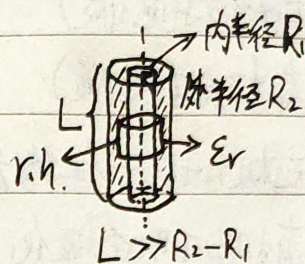 内半径R₁
外半径R₂
L
r.h.
εr
L >> R₂-R₁